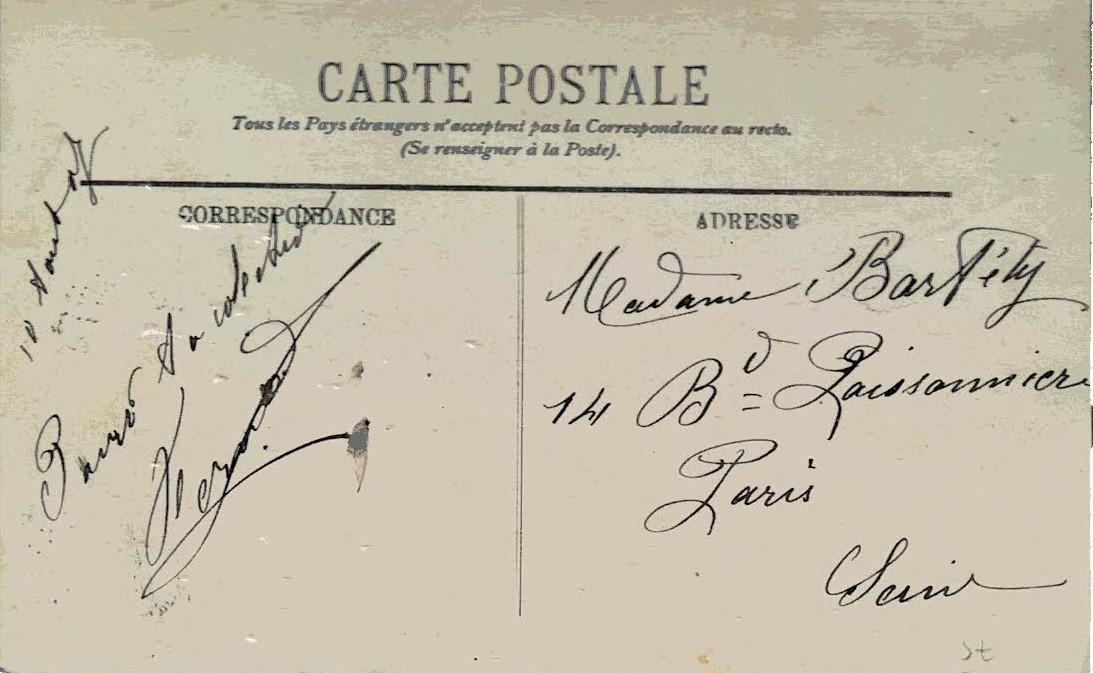 CARTE POSTALE
Tous les Pays étrangers n'acceptent pas la Correspondance au recto.
(Se renseigner à la Poste).
CORRESPONDANCE
10 Aout 07
ADRESSE
Madame Bartéty
14 Bd Poissonniere
Paris
Seine